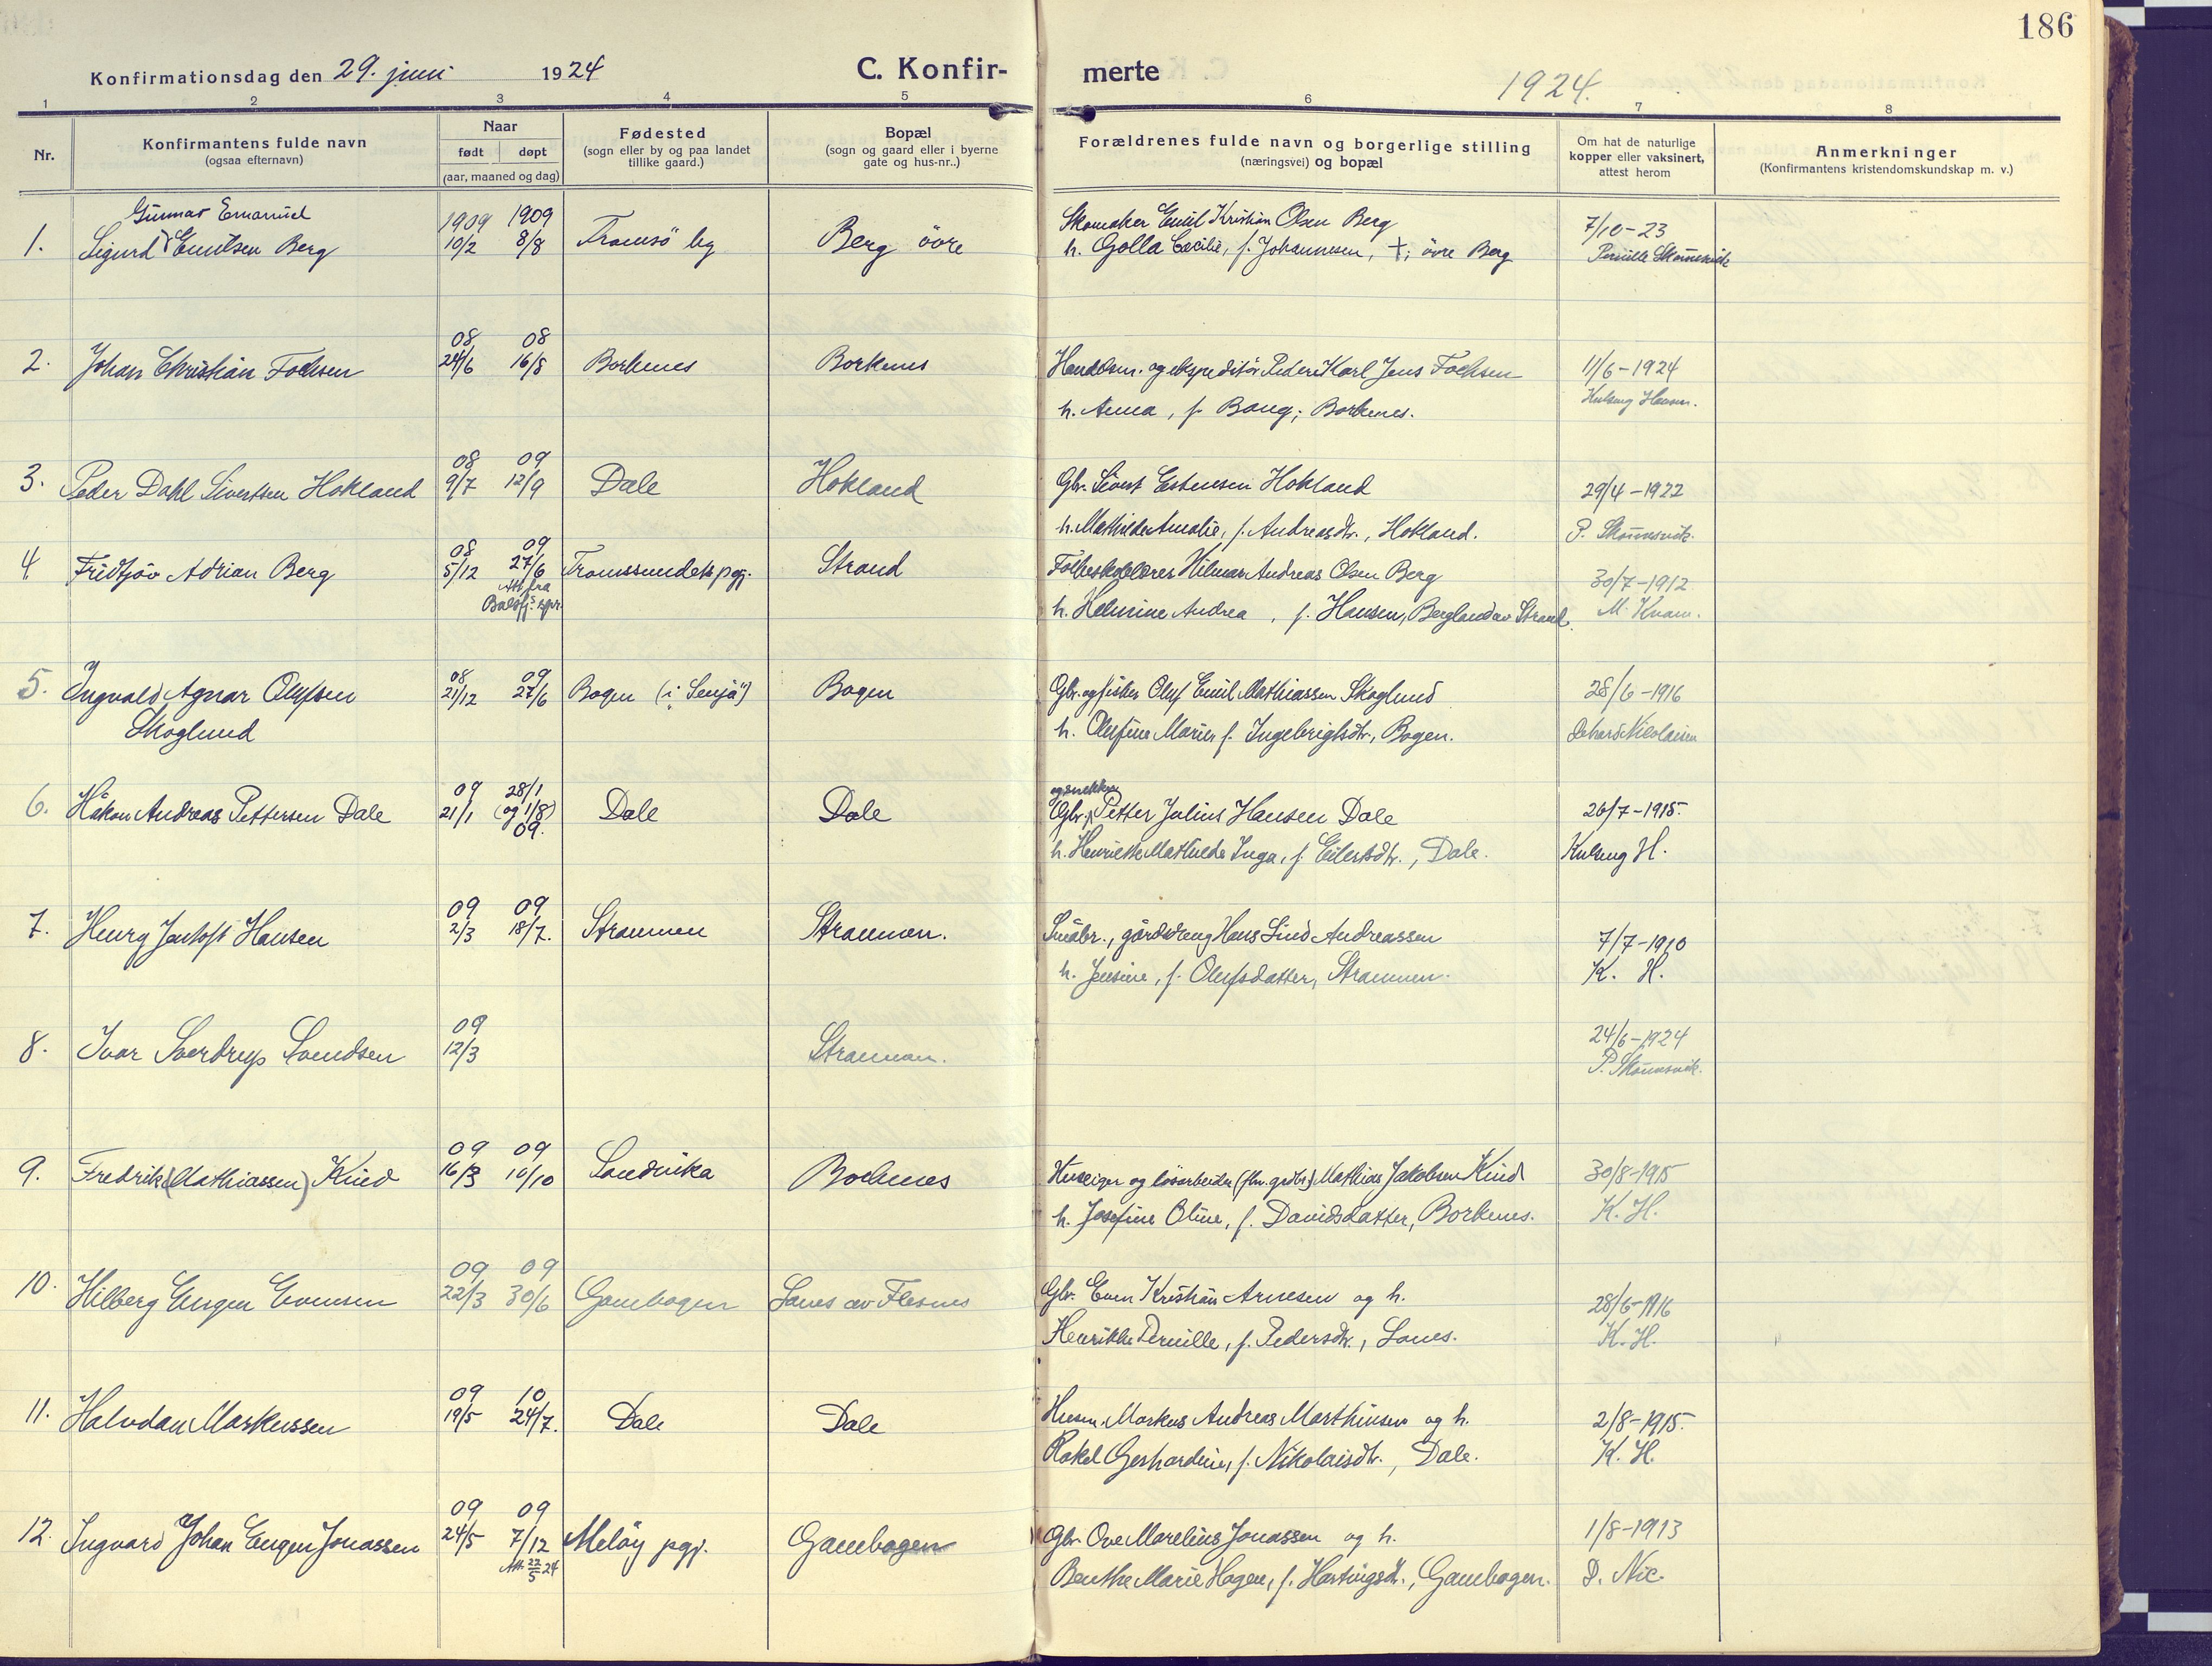 186
Konfirmationsdag den 29. juni 1924
C. Konfir-
merte
1924.
1 2 3 4 5 6 7 8
Nr.
Konfirmantens fulde navn
(ogsaa efternavn)
Naar
født døpt
(aar, maaned og dag)
Fødested
(sogn eller by og paa landet
tillike gaard.)
Bopæl
(sogn og gaard eller i byerne
gate og hus-nr..)
Forældrenes fulde navn og borgerlige stilling
(næringsvei) og bopæl
Om hat de naturlige
kopper eller vaksinert,
attest herom
Anmerkninger
(Konfirmantens kristendomskundskap m. v.)
Gunnar Emanuel
1. Sigurd Emilsen Berg
1909 1909
10/2 8/8
Tromsö by
Berg övre
Skomaker Emil Kristian Olsen Berg
h. Golla Cecilie, f. Johannesen, †; övre Berg
7/10-23
Pernille Skönnesvik
2. Johan Christian Fochsen
08 08
24/6 16/8
Borkenes
Borkenes
Handelsm. og ekspeditör Peder Karl Jens Fochsen
h. Anna, f. Bang; Borkenes.
11/6-1924
Kulseng Hansen.
3. Peder Dahl Sivertsen Hokland
08 09
9/7 12/9
Dale
Hokland
Gbr. Sivert Estensen Hokland
h. Mathilde Amalie, f. Andreasdtr., Hokland.
29/4-1922
P. Skönnesvik.
4. Fridtjov Adrian Berg
08 09
5/12 27/6
Att fra
Balsfj. spr.
Tromssundets pgj.
Strand
Folkeskolelærer Hilmar Andreas Olsen Berg
h. Helmine Andrea, f. Hansen, Bergland av Strand.
30/7-1912
M. Kvam.
5. Ingvald Agnar Olufsen
Skoglund
08 09
21/12 27/6
Bogen (i "Senja")
Bogen
Gbr. og fisker Oluf Emil Mathiassen Skoglund
h. Olufine Marie, f. Ingebrigtsdtr., Bogen.
28/6-1916
Nicolaisen
6. Håkon Andreas Pettersen Dale
09 28/1
21/1 (og 1/8)
09.
Dale
Dale
og snekker
Gbr. Petter Julius Hansen Dale
h. Henriette Mathilde Inga, f. Eilertsdtr., Dale.
26/7-1915.
Kulseng H.
7. Henry Jentoft Hansen
09 09
2/3 18/7.
Straumen
Straumen.
Småbr., gårdsdreng Hans Lind Andreassen
h. Jensine, f. Olufsdatter, Straumen.
7/7-1910
K. H.
8. Ivar Sverdrup Svendsen
09
12/3
Straumen.
24/6-1924
P. Skönnesvik.
9. Fredrik (Mathiassen) Kind
09 09
16/3 10/10
Sandvika
Borkenes
Huseier og lösarbeider (fhv. grdbr.) Mathias Jakobsen Kind
h. Josefine Oline, f. Davidsdatter, Borkenes.
30/8-1915
K. H.
10. Hilberg Eugen Evensen
09 09
22/3 30/6
Gambogen
Sanes av Flesnes
Gbr. Even Kristian Arnesen og h.
Henrikke Pernille, f. Pedersdtr., Sanes.
28/6-1916
K. H.
11. Halvdan Markussen
09 10
19/5 24/7.
Dale
Dale
Husm. Markus Andreas Marthinsen og h.
Rakel Gerhardine, f. Nikolaisdtr., Dale.
2/8-1915.
K. H.
12. Ingvard Johan Eugen Jonassen
09 09
24/5 7/12
Att. 22/5 24
Melöy pgj.
Gambogen
Gbr. Ove Marelius Jonassen og h.
Benthe Marie Hagen, f. Hartvigsdtr., Gambogen.
1/8-1913
D. Nic.